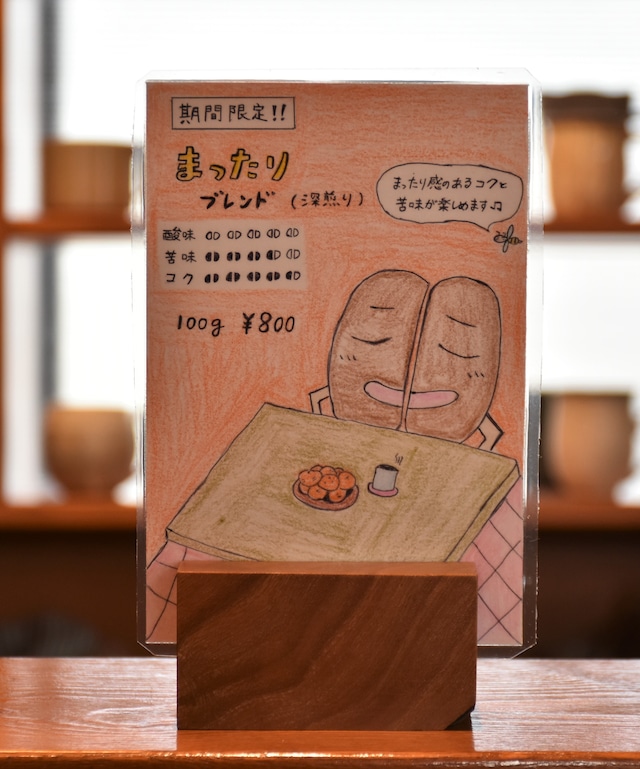 期間限定!!
まったり
ブレンド (深煎り)
まったり感のあるコクと
苦味が楽しめます♫
酸味
苦味
コク
100g ¥800